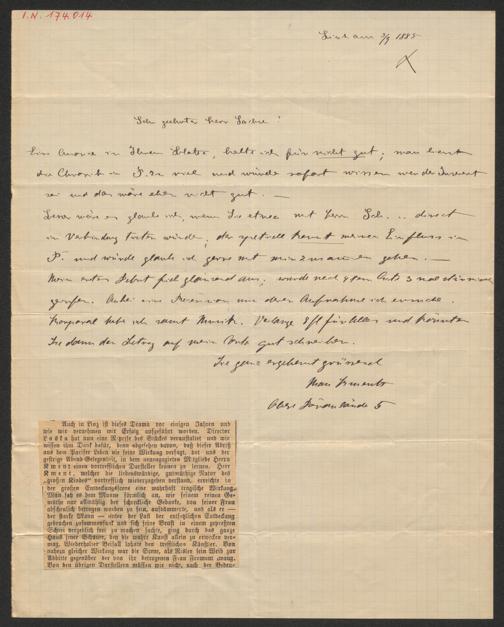 I.N. 174.014
Linz am 3/9 1885
Sehr geehrter Herr
Eine Annonce in Ihrem halte ich für nicht gut; man kennt
die Chronik in viel und würde sofort wissen wer der Inserent
sei und das wäre eben nicht gut. —
wäre es glaube ich, wenn Sie etwas mit Herrn Sch... direct
in Verbindung treten würden, der kennt meinen Einfluss in
P. und würde glaube ich gerne mit mir zusammen gehen. —
Mein erstes Debut fiel glänzend aus, wurde nach dem Acte 3 mal stürmisch
gerufen. Anbei eine Recension um deren Aufnahme ich ersuche.
habe ich samt Musik. Verlange 8 fl für Alles und könnten
Sie dann den Betrag auf mein Conto gut schreiben.
Sie ganz ergebenst grüssend
Obere Donaulände 5
Auch in Linz ist dieses Drama vor einigen Jahren und
wie wir vernehmen mit Erfolg aufgeführt worden. Director
Laska hat nun eine Reprise des Stückes veranstaltet und wir
wissen ihm Dank dafür, denn abgesehen davon, daß dieser Abriß
aus dem Pariser Leben nie seine Wirkung verfehlt, bot uns der
gestrige Abend Gelegenheit, in dem neuengagirten Mitgliede Herrn
Kment einen vortrefflichen Darsteller kennen zu lernen. Herr
Kment, welcher die liebenswürdige, gutmüthige Natur des
„großen Kindes" vortrefflich wiederzugeben verstand, erreichte in
der großen Entdeckungsscene eine wahrhaft tragische Wirkung.
Man sah es dem Manne förmlich an, wie seinem reinen Ge-
müthe nur allmählig der schreckliche Gedanke, von seiner Frau
abscheulich betrogen worden zu sein, aufdämmerte, und als er —
der starke Mann — unter der Last der entsetzlichen Entdeckung
gebrochen zusammensinkt und sich seine Brust in einem gepreßten
Schrei vergeblich frei zu machen suchte, ging durch das ganze
Haus jener Schauer, den die wahre Kunst allein zu erwecken ver-
mag. Wiederholter Beifall lohnte den trefflichen Künstler. Von
nahezu gleicher Wirkung war die Scene, als Risler sein Weib zur
Abbitte gegenüber der von ihr betrogenen Frau Fromont zwang.
Von den übrigen Darstellern müssen wir nicht, nach der Bedeu-